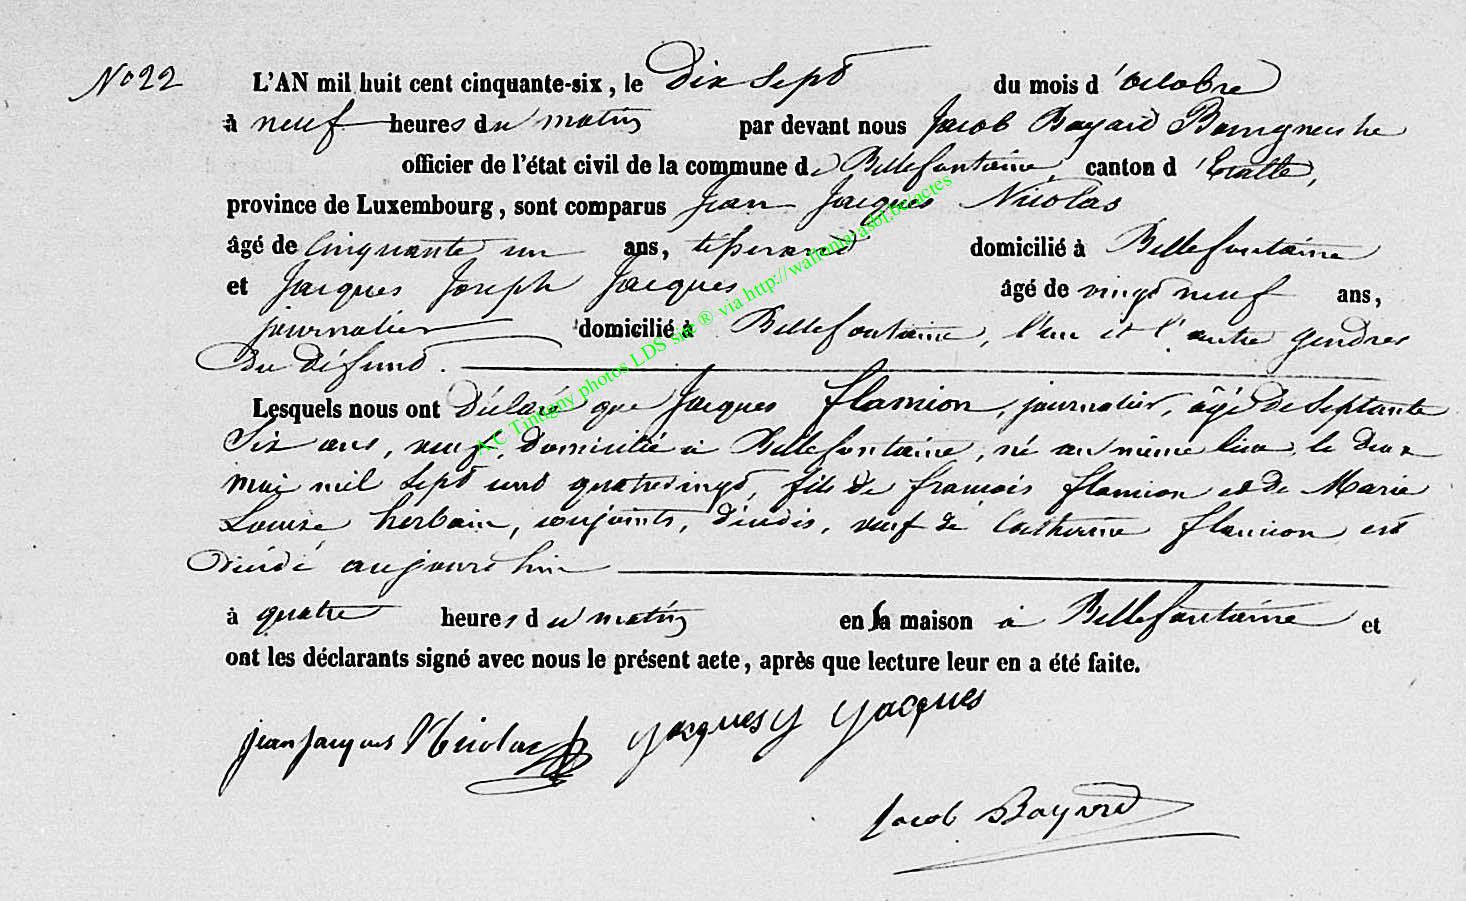 No 22
L'AN mil huit cent cinquante-six, le Dix Sept du mois d'octobre
à neuf heures du matin par devant nous Jacob Bayard Bourgmestre
officier de l'état civil de la commune de Bellefontaine, canton d'Etalle,
province de Luxembourg, sont comparus Jean Jacques Nicolas
âgé de Cinquante un ans, tisserand domicilié à Bellefontaine
et Jacques Joseph Jacques âgé de vingt neuf ans,
journalier domicilié à Bellefontaine, l'un et l'autre gendres
Du défunt.
Lesquels nous ont Déclaré que Jacques flamion, journalier, âgé de Septante
Six ans, veuf, Domicilié à Bellefontaine, né au même lieu, le deux
mai mil sept cent quatrevingt, fils de françois flamion et de Marie
Louise herbain, conjoints, décédés, veuf de Catherine flamion est
Décédé aujourd'hui
à quatre heures du matin en sa maison à Bellefontaine et
ont les déclarants signé avec nous le présent acte, après que lecture leur en a été faite.
jean jacques Nicolas jacques j jacques
Jacob Bayard
A.C Tintigny photos LDS site ® via http://wallonia-asbl.be/actes